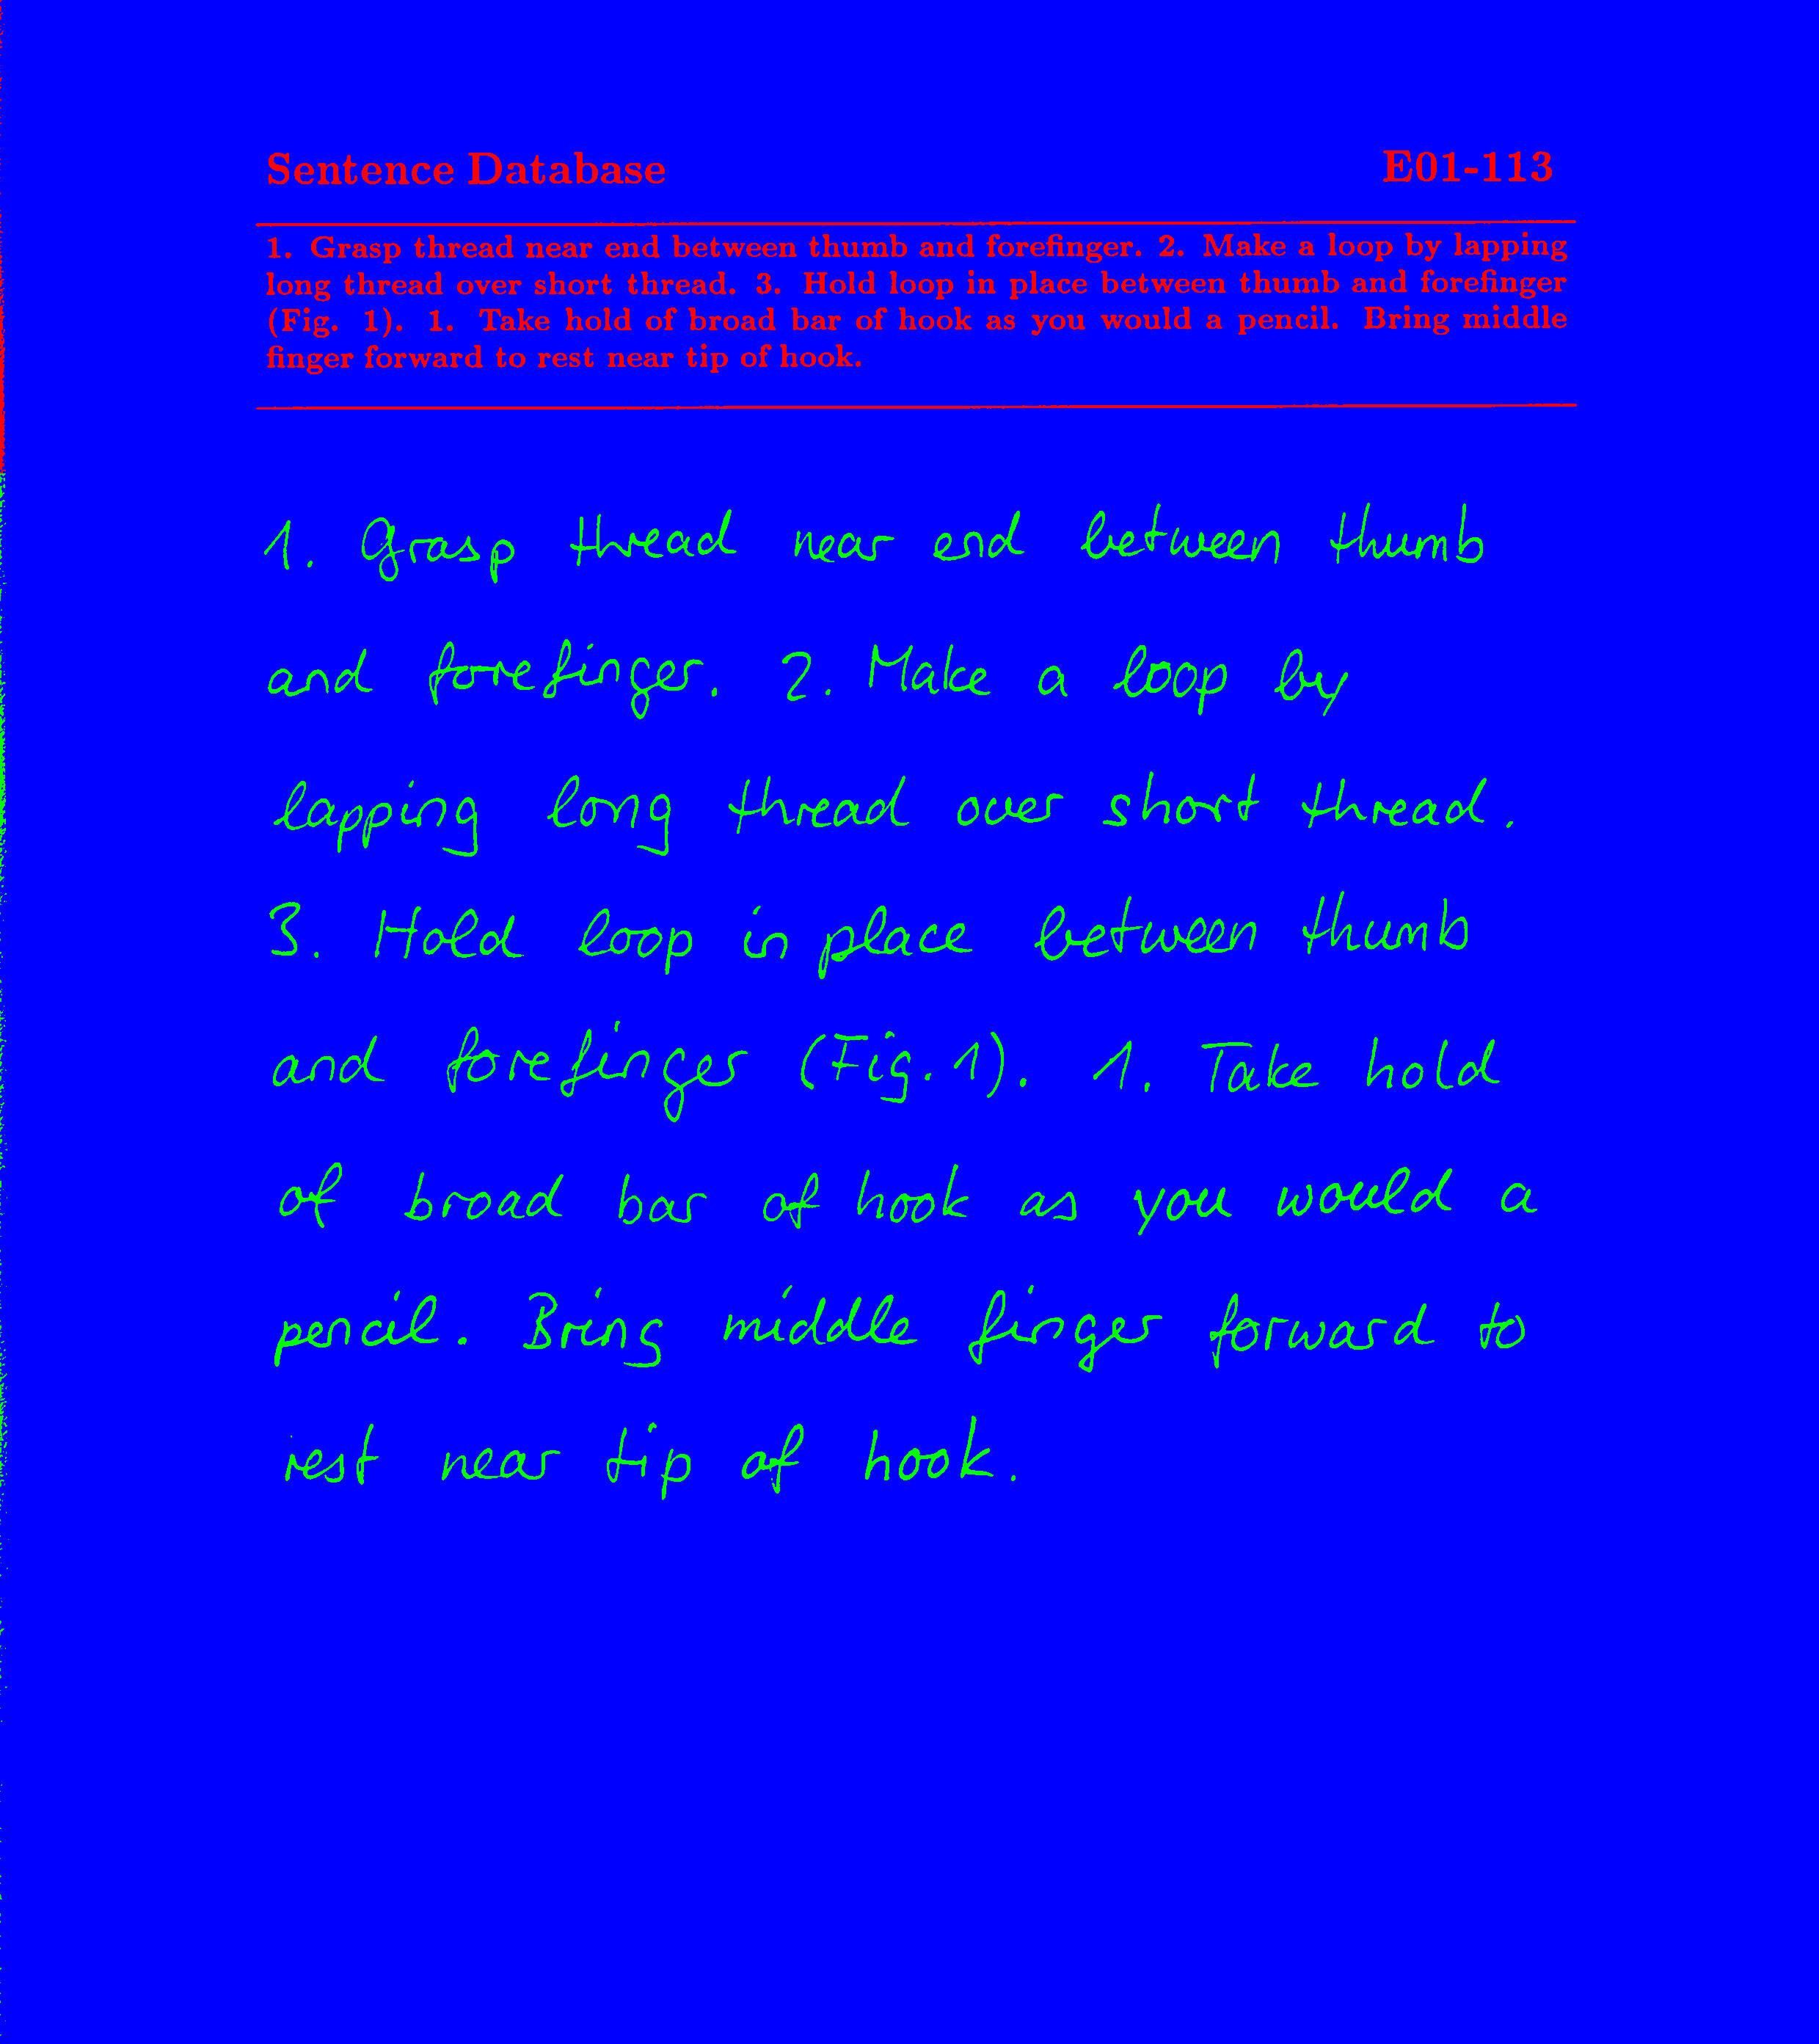 Sentence Database E01-113
1. Grasp thread near end between thumb and forefinger. 2. Make a loop by lapping
long thread over short thread. 3. Hold loop in place between thumb and forefinger
(Fig. 1). 1. Take hold of broad bar of hook as you would a pencil. Bring middle
finger forward to rest near tip of hook.
1. Grasp thread near end between thumb
and forefinger. 2. Make a loop by
lapping long thread over short thread.
3. Hold loop in place between thumb
and forefinger (Fig. 1). 1. Take hold
of broad bar of hook as you would a
pencil. Bring middle finger forward to
rest near tip of hook.